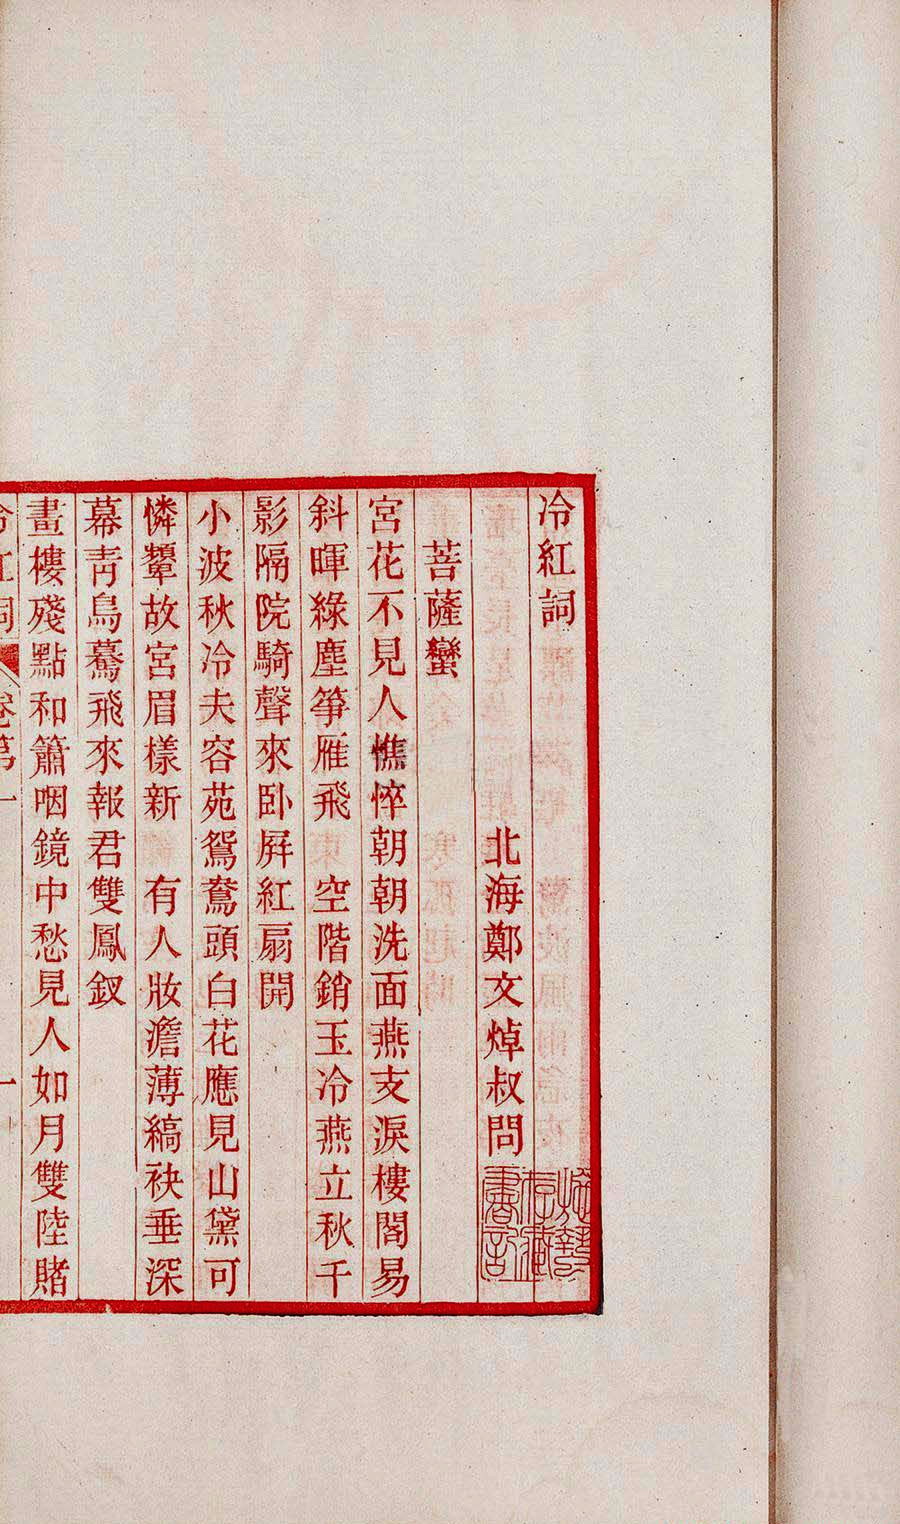 冷紅詞
北海鄭文焯叔問
菩薩蠻
宮花不見人憔悴朝朝洗面燕支淚樓閣易
斜暉綠塵箏雁飛　空階銷玉冷燕立秋千
影隔院騎聲來卧屛紅扇開
小波秋冷夫容苑鴛鴦頭白花應見山黛可
憐顰故宮眉樣新　有人妝澹薄縞袂垂深
幕靑鳥驀飛來報君雙鳳釵
畫樓殘點和簫咽鏡中愁見人如月雙陸賭
冷紅詞　卷第一　一